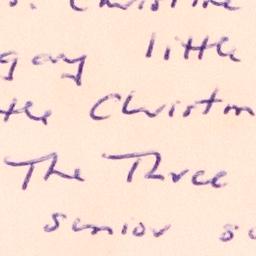 Christine
gay little
the Christm
The Three
senior